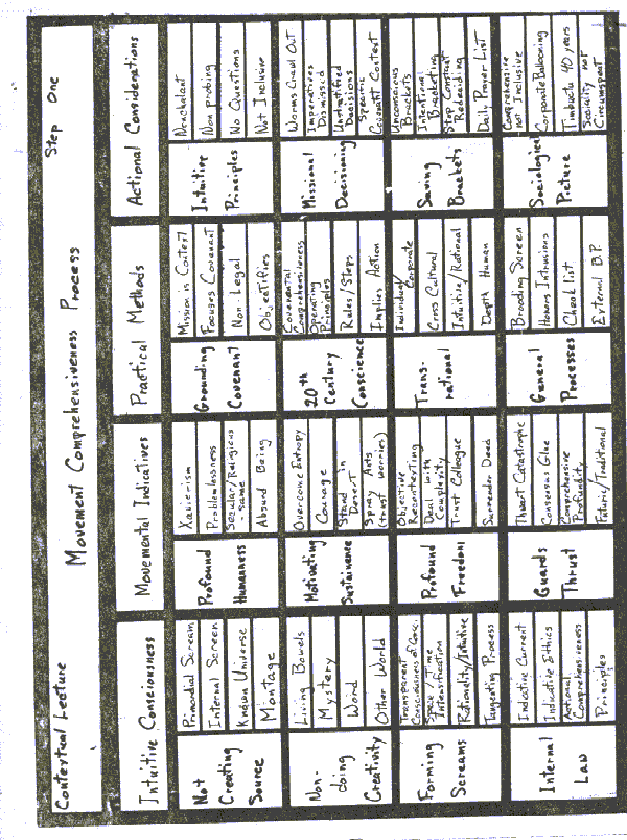 Contextual Lecture
Step One
Movement Comprehensiveness Process
Intuitive Consciousness
Movemental Indicatives
Practical Methods
Actional Considerations
Not
Creating
Source
Primordial Scream
Internal Screen
Known Universe
Montage
Profound
Humanness
Xavier-ism
Problemlessness
Secular/Religious
- same
Absurd Being
Grounding
Covenant
Mission is Context
Focuses Covenant
Non Legal
Objectifies
Intuitive
Principles
Nonchalant
Non probing
No Questions
Not Inclusive
Non-
doing
Creativity
Living Bowels
Mystery
Word
Other World
Motivating
Sustainence
Overcome Entropy
Courage
Stand in
Desert
Spray Ants
(trust worries)
20th
Century
Conscience
Covenantal
Comprehensiveness
Operating
Principles
Rules/Steps
Implies Action
Missional
Decisioning
Worms Crawl Out
Imperatives
Dismissed
Unstratified
Decisions
Specific
Covenant Context
Forming
Screams
Transparent
Consciousness of Consc.
Space/Time
Intensification
Rationality/Intuitive
Tangenting Process
Profound
Freedom
Objective
Reconnecting
Deal with
Complexity
Trust Colleague
Surrender Deed
Trans-
rational
Individual/
Corporate
Cross Cultural
Intuitive/Rational
Depth Human
Saving
Brackets
Unconscious
Brackets
Intentional
Bracketing
Stop Constant
Redeciding
Daily Prayer List
Internal
Law
Indicative Current
Indicative Ethics
Actional
Comprehensiveness
Principles
Guards
Thrust
Thwart Catastrophe
Consensus Glue
Comprehensive
Profundity
Futuric/Traditional
General
Processes
Brooding Screen
Honors Intrusions
Check list
External B.P.
Sociological
Picture
Comprehensive
not Inclusive
Corporate Ballooning
Timbuctu 40 years
Sociality not
Circumspect